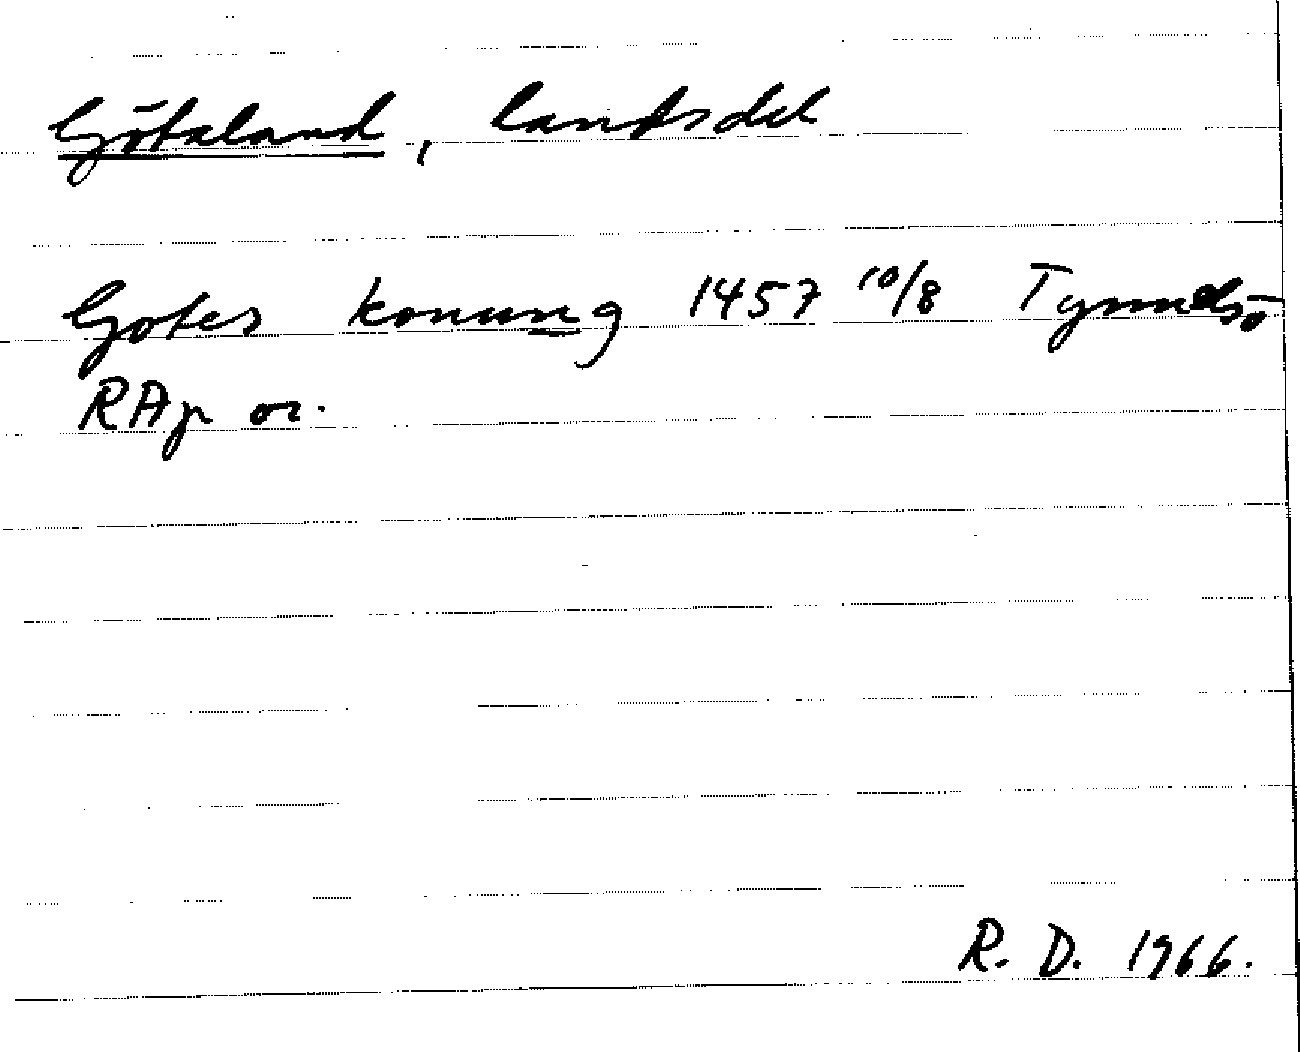 Götaland, landsdel
Gotes konung 1457 10/8 Tynnelsö
RAp or.
R. D. 1966.